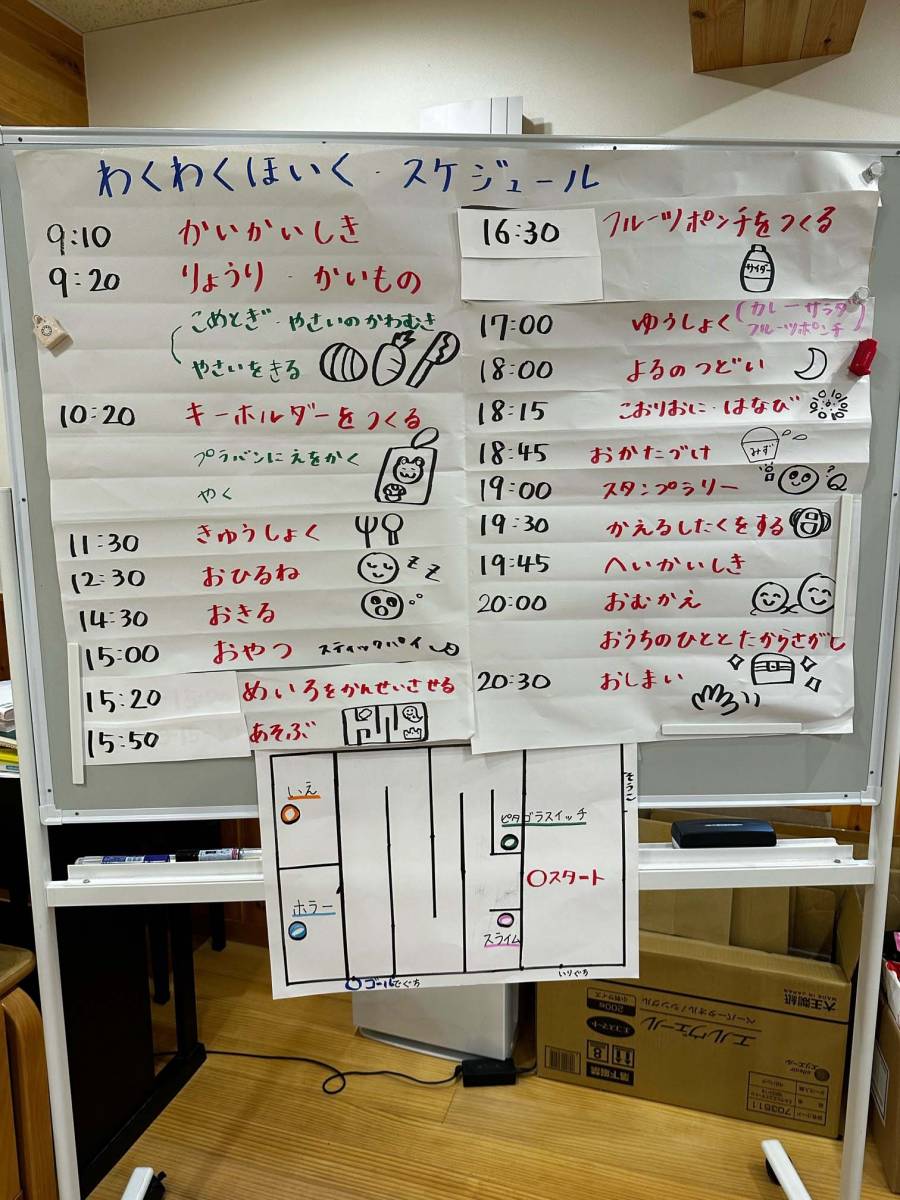 わくわくほいく・スケジュール
9:10 かいかいしき
9:20 りょうり・かいもの
こめとぎ・やさいのかわむき
やさいをきる
10:20 キーホルダーをつくる
プラバンにえをかく
やく
11:30 きゅうしょく
12:30 おひるね
14:30 おきる
15:00 おやつ スティックパイ
15:20 めいろをかんせいさせる
15:50 あそぶ
16:30 フルーツポンチをつくる
サイダー
17:00 ゆうしょく(カレーサラダ
フルーツポンチ)
18:00 よるのつどい
18:15 こおりおに・はなび
18:45 おかたづけ
みず
19:00 スタンプラリー
19:30 かえるしたくをする
19:45 へいかいしき
20:00 おむかえ
おうちのひととたからさがし
20:30 おしまい
いえ
ピタゴラスイッチ
そうこ
○スタート
ホラー
スライム
○ゴール でぐち
いりぐち
大王製紙
MADE IN JAPAN
ペーパータオル/シングル
200枚
小判サイズ
エルヴェール
エコスマート
8
天下厳禁
エリエール
703511